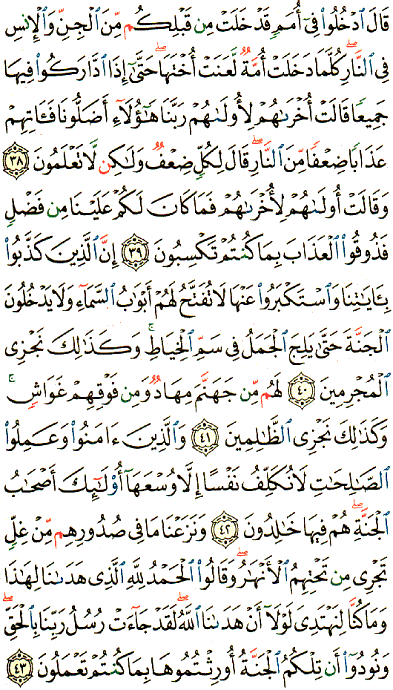 قَالَ ٱدْخُلُوا۟ فِىٓ أُمَمٍ قَدْ خَلَتْ مِن قَبْلِكُم مِّنَ ٱلْجِنِّ وَٱلْإِنسِ
فِى ٱلنَّارِ ۖ كُلَّمَا دَخَلَتْ أُمَّةٌ لَّعَنَتْ أُخْتَهَا ۖ حَتَّىٰٓ إِذَا ٱدَّارَكُوا۟ فِيهَا
جَمِيعًا قَالَتْ أُخْرَىٰهُمْ لِأُولَىٰهُمْ رَبَّنَا هَـٰٓؤُلَآءِ أَضَلُّونَا فَـَٔاتِهِمْ
عَذَابًا ضِعْفًا مِّنَ ٱلنَّارِ ۖ قَالَ لِكُلٍّ ضِعْفٌ وَلَـٰكِن لَّا تَعْلَمُونَ ٣٨
وَقَالَتْ أُولَىٰهُمْ لِأُخْرَىٰهُمْ فَمَا كَانَ لَكُمْ عَلَيْنَا مِن فَضْلٍ
فَذُوقُوا۟ ٱلْعَذَابَ بِمَا كُنتُمْ تَكْسِبُونَ ٣٩ إِنَّ ٱلَّذِينَ كَذَّبُوا۟
بِـَٔايَـٰتِنَا وَٱسْتَكْبَرُوا۟ عَنْهَا لَا تُفَتَّحُ لَهُمْ أَبْوَٰبُ ٱلسَّمَآءِ وَلَا يَدْخُلُونَ
ٱلْجَنَّةَ حَتَّىٰ يَلِجَ ٱلْجَمَلُ فِى سَمِّ ٱلْخِيَاطِ ۚ وَكَذَٰلِكَ نَجْزِى
ٱلْمُجْرِمِينَ ٤٠ لَهُم مِّن جَهَنَّمَ مِهَادٌ وَمِن فَوْقِهِمْ غَوَاشٍ ۚ
وَكَذَٰلِكَ نَجْزِى ٱلظَّـٰلِمِينَ ٤١ وَٱلَّذِينَ ءَامَنُوا۟ وَعَمِلُوا۟
ٱلصَّـٰلِحَـٰتِ لَا نُكَلِّفُ نَفْسًا إِلَّا وُسْعَهَآ أُو۟لَـٰٓئِكَ أَصْحَـٰبُ
ٱلْجَنَّةِ ۖ هُمْ فِيهَا خَـٰلِدُونَ ٤٢ وَنَزَعْنَا مَا فِى صُدُورِهِم مِّنْ غِلٍّ
تَجْرِى مِن تَحْتِهِمُ ٱلْأَنْهَـٰرُ ۖ وَقَالُوا۟ ٱلْحَمْدُ لِلَّهِ ٱلَّذِى هَدَىٰنَا لِهَـٰذَا
وَمَا كُنَّا لِنَهْتَدِىَ لَوْلَآ أَنْ هَدَىٰنَا ٱللَّهُ ۖ لَقَدْ جَآءَتْ رُسُلُ رَبِّنَا بِٱلْحَقِّ ۖ
وَنُودُوٓا۟ أَن تِلْكُمُ ٱلْجَنَّةُ أُورِثْتُمُوهَا بِمَا كُنتُمْ تَعْمَلُونَ ٤٣